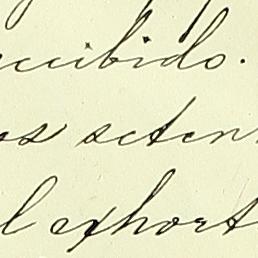 recibido.
os seten
l exhort